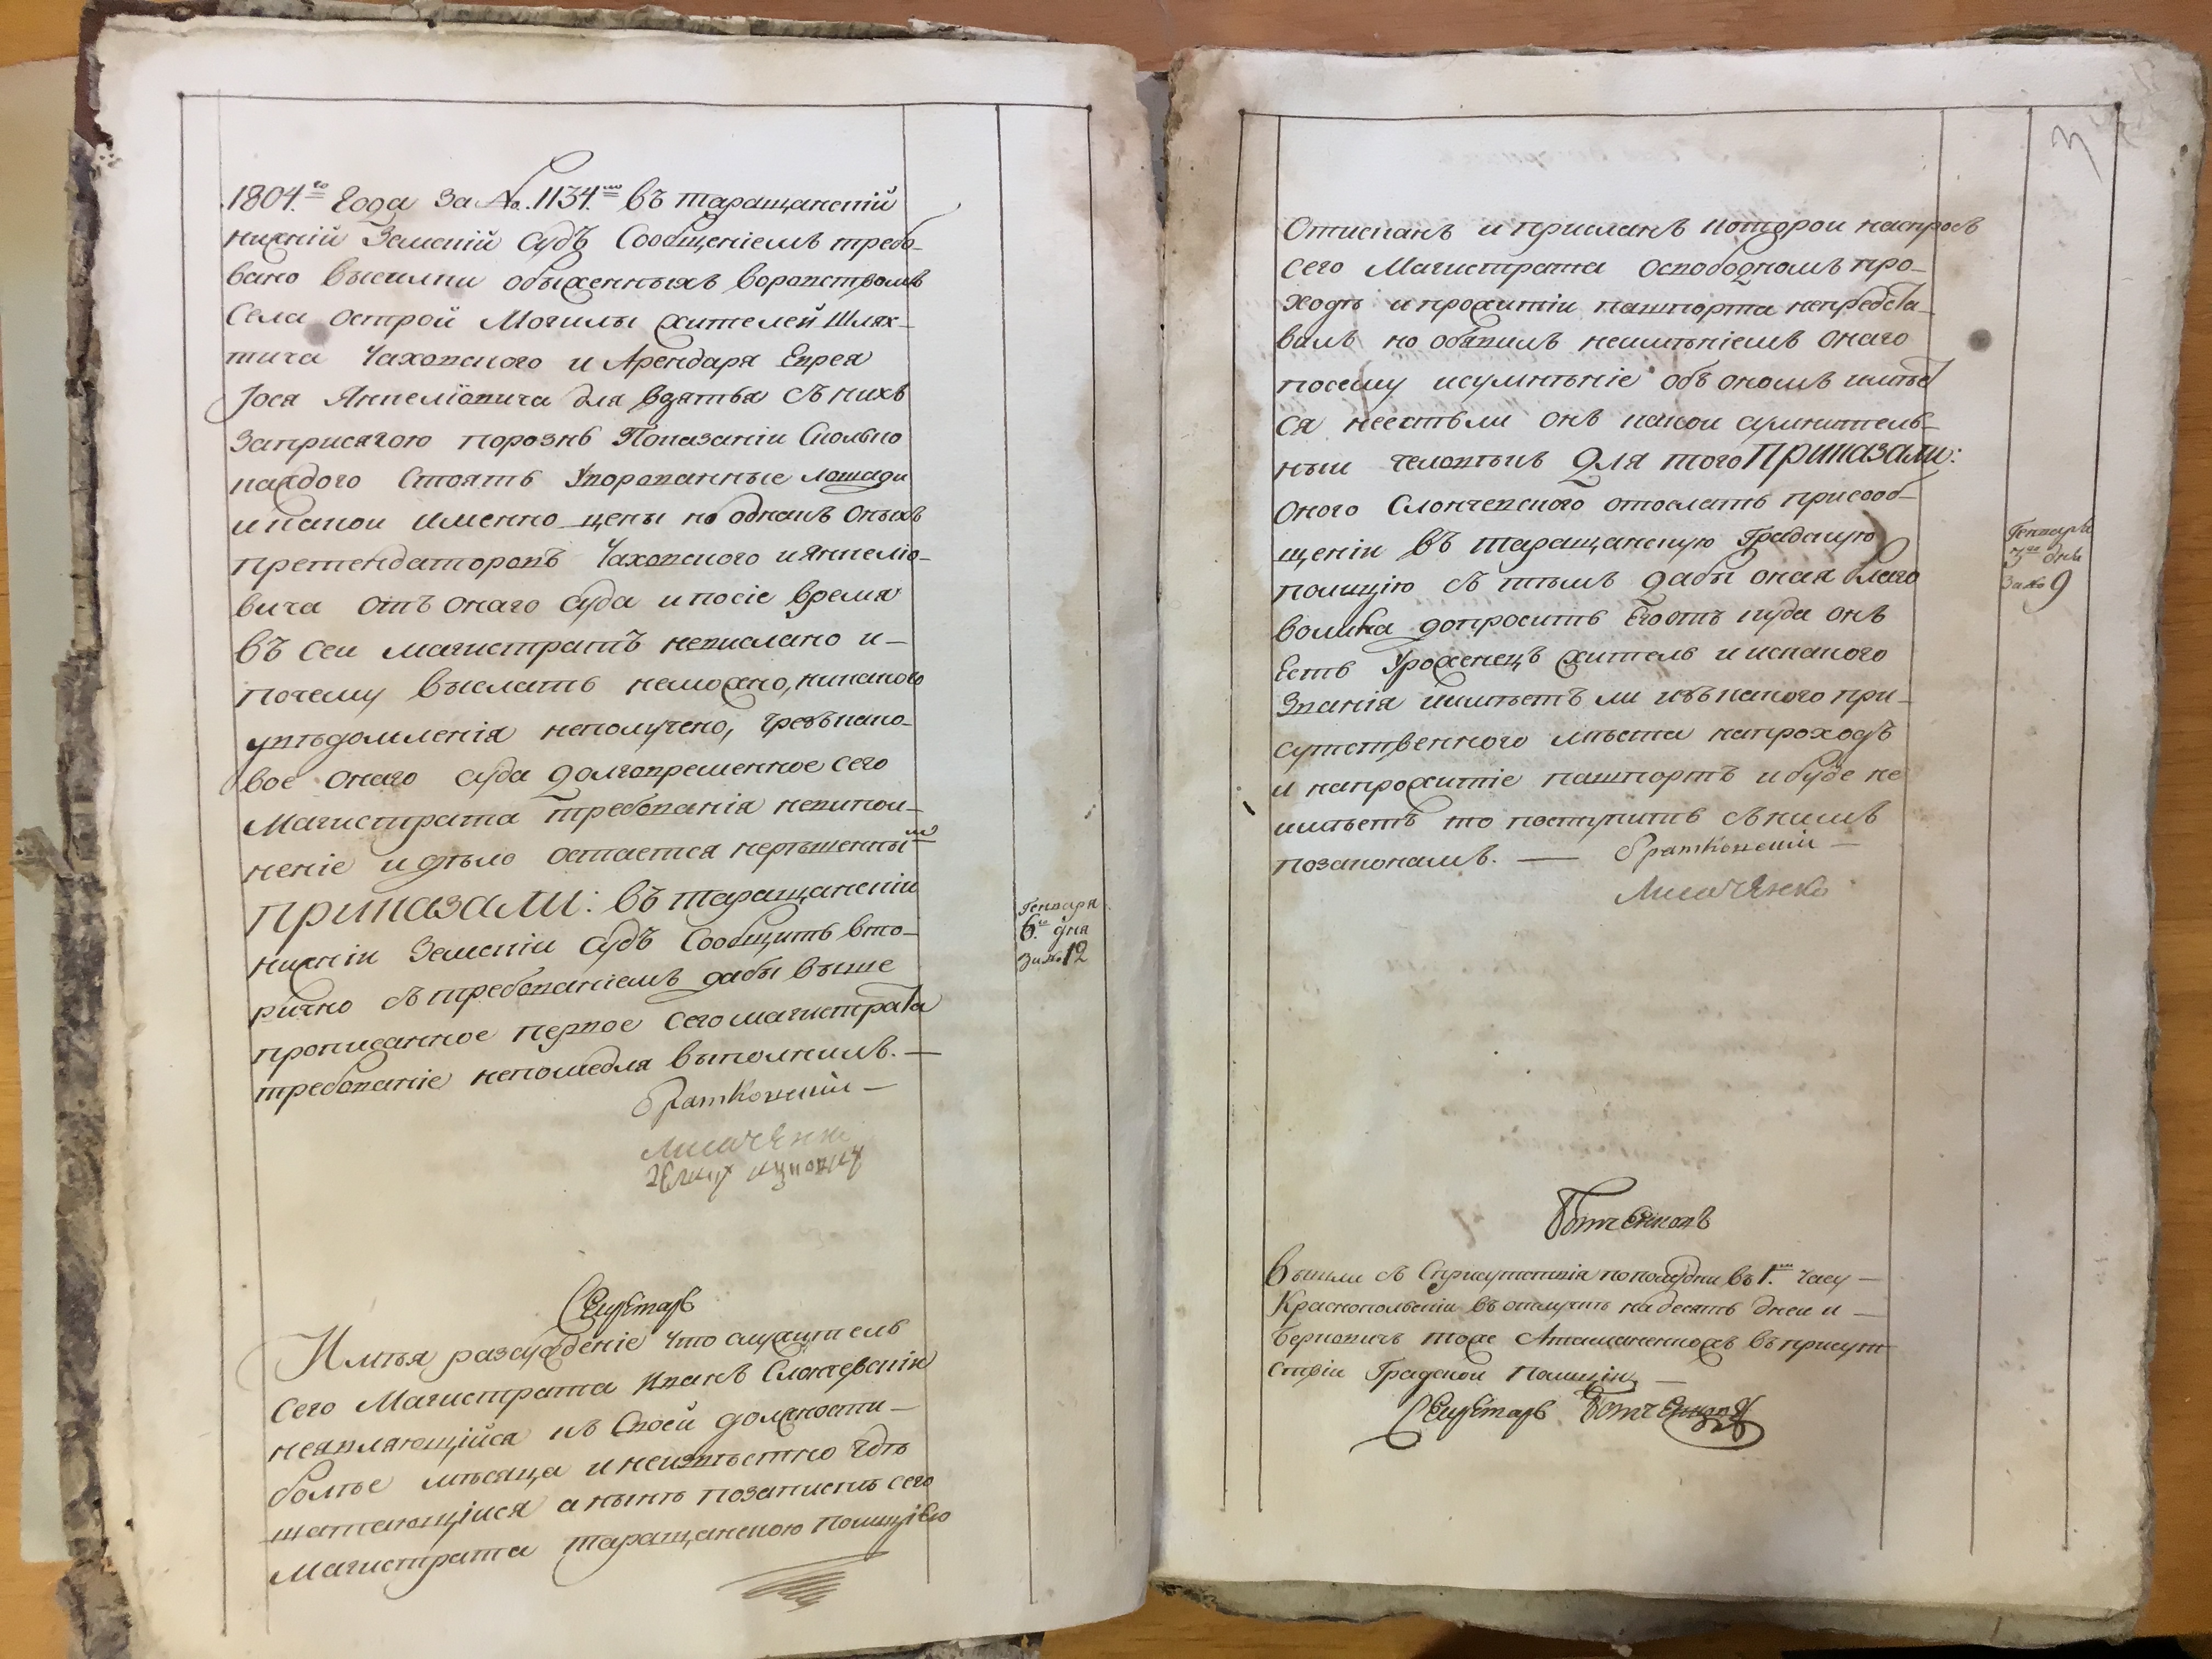 1804.го года за №. 1134.мъ въ таращанскій
нижній Земскій судъ Сообщеніемъ требо-
вано высилки обвиженныхъ воровствомъ
Села острой Могилы жителей Шлях-
тича Чаховского и Арендаря Еврея
Іося Янкеліовича для взятья съ нихъ
заприсягою порознь Показаніи Сколько
каждого Стоятъ Уворованные лошади
и какои именно цены но однакъ оныхъ
претендаторовъ Чаховского и Янкеліо-
вича отъ онаго суда и посіе время
въ сеи магистратъ невислано и-
почему выслать неможно, никакого
увѣдомленія неполучено, чрезъ како-
вое онаго суда долговременное сего
Магистрата требованія невипол-
неніе и дѣло остается нерѣшеннымъ
Приказали: въ таращанскіи
нижніи Земскіи судъ Сообщить вто-
рично съ требованіемъ дабы выше
прописанное первое сего магистрата
требованіе непомедля выполнилъ. —
Братковскіи —
Лисаченко
Секретарь
Имѣя разсужденіе что служитель
сего Магистрата Иванъ Слончевскіи
неявляющійся къ Своей должности-
болѣе мѣсяца и неизвѣстно гдѣ
шатающіися а нынѣ позаписѣ сего
магистрата таращанскою полициею
Генваря
6.го дня
за № 12
3
Отисканъ и присланъ которои напросъ
сего Магистрата освободномъ про-
ходѣ и прожитіи пашпорта непредста-
вилъ но обявилъ неимѣніемъ онаго
посему исумнѣніе объ ономъ имѣет
ся неестьли онъ какои сумнитель-
ныи человѣкъ Для того Приказали:
оного Слончевского отослать присооб-
щеніи въ таращанскую Градскую
полицію съ тѣмъ дабы оная благо
волила допросить Его отъ куда онъ
Есть Уроженецъ житель и искакого
Званія имѣетъ ли изъ какого при-
сутственного мѣста напроходъ
и напрожитіе пашпортъ и буде не
имѣетъ то поступить съ нимъ
позаконамъ. — Братковскіи —
Лисаченко
Генваря
3го дня
За № 9
Ботвенковъ
Вышли съ Сприсутствія пополудни въ 1.мъ часу —
Краснопольскіи въ отлучкѣ на десять дней и —
Берковичъ тоже Атаманенкожъ въ присут
ствіи Градскои Полиціи —
Секретарь